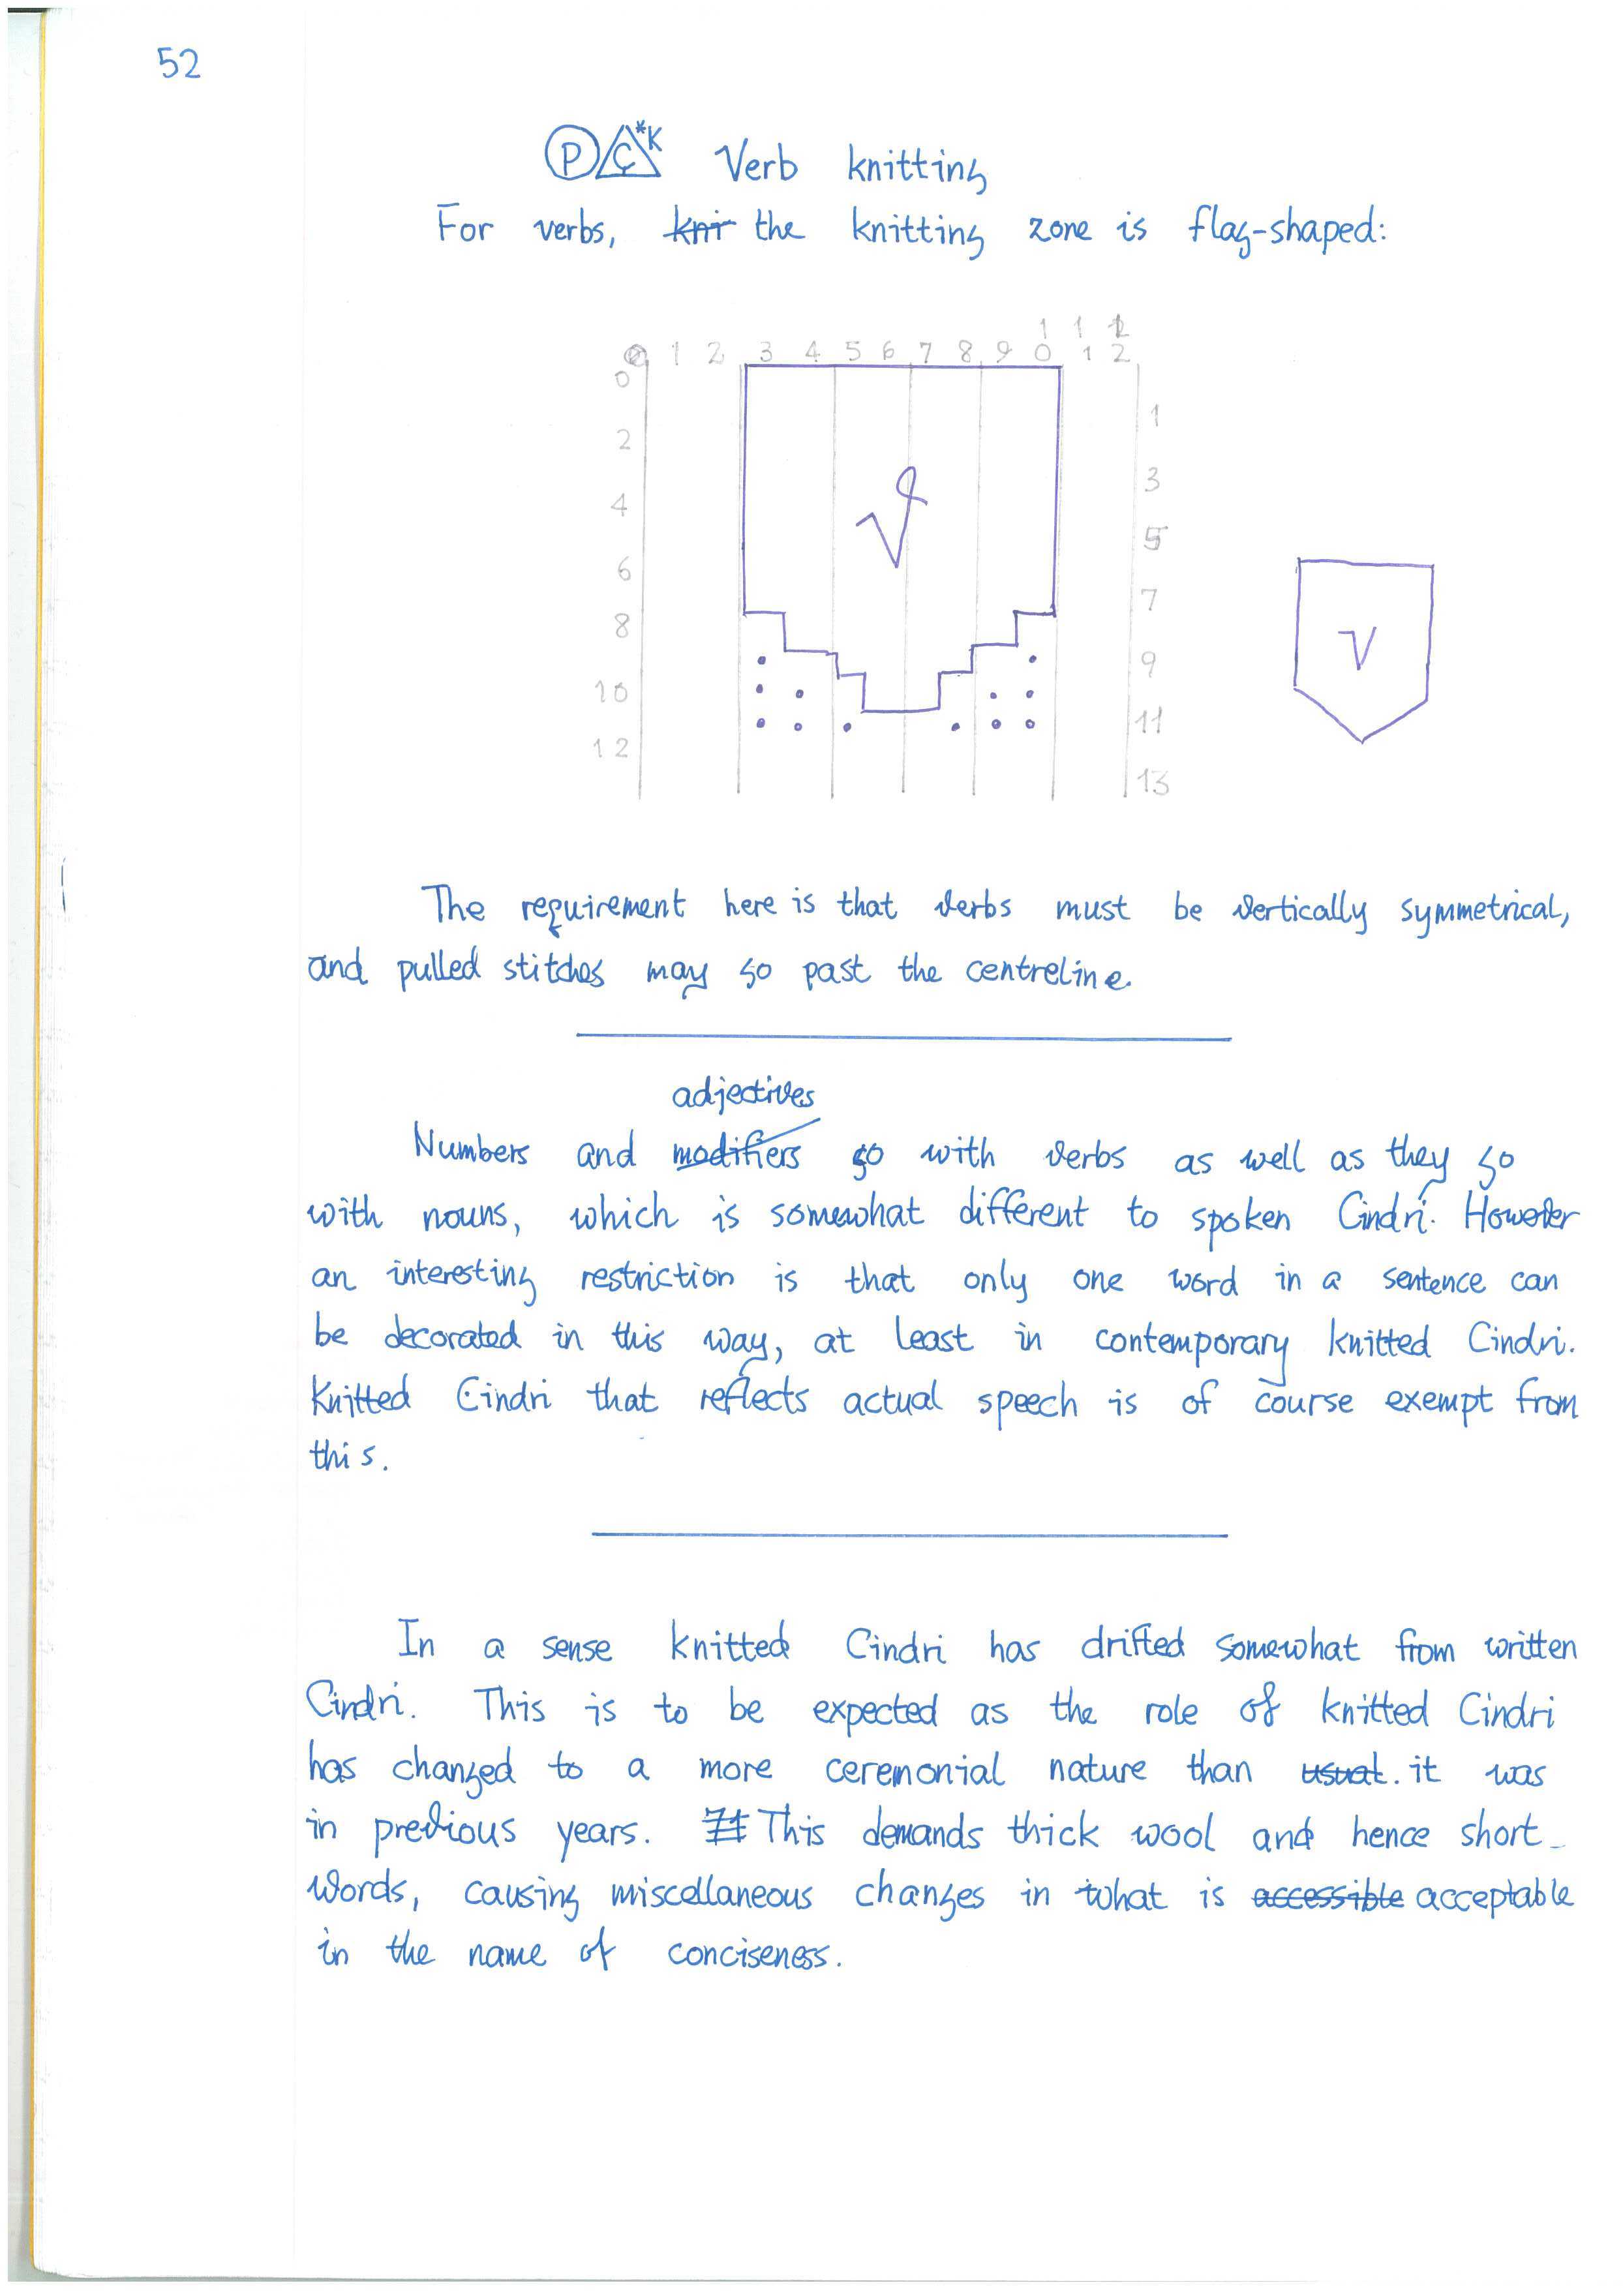 52
P Ç *K Verb knitting
For verbs, knr the knitting zone is flag-shaped:
1 1 1
0 1 2 3 4 5 6 7 8 9 0 1 2
0
1
2
3
4
V
5
6
7
8
V
9
10
11
12
13
The requirement here is that verbs must be vertically symmetrical,
and pulled stitches may go past the centreline.
adjectives
Numbers and modifiers go with verbs as well as they go
with nouns, which is somewhat different to spoken Cindri. However
an interesting restriction is that only one word in a sentence can
be decorated in this way, at least in contemporary knitted Cindri.
Knitted Cindri that reflects actual speech is of course exempt from
this.
In a sense knitted Cindri has drifted somewhat from written
Cindri. This is to be expected as the role of knitted Cindri
has changed to a more ceremonial nature than usual. it was
in previous years. It This demands thick wool and hence short
words, causing miscellaneous changes in what is accessible acceptable
in the name of conciseness.